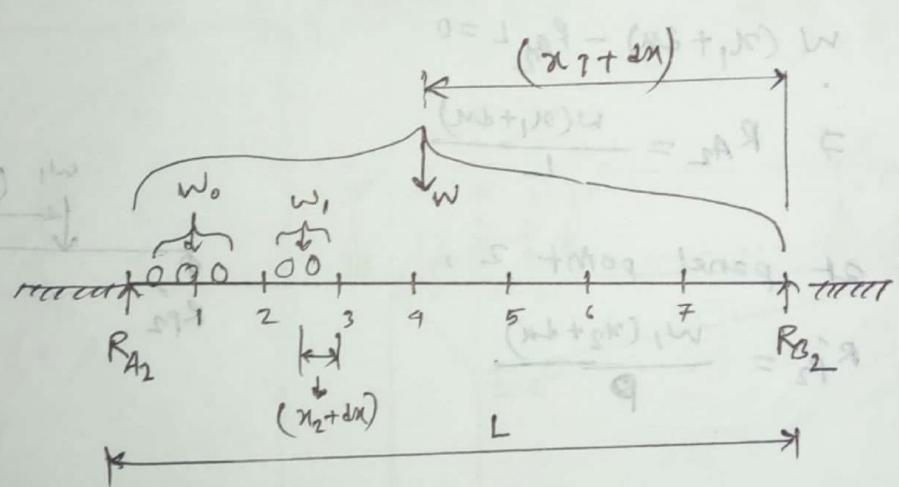 (x₁+dx)
W
W₀
W₁
1 2 3 4 5 6 7
R_A₂
R_B₂
(x₂+dx)
L